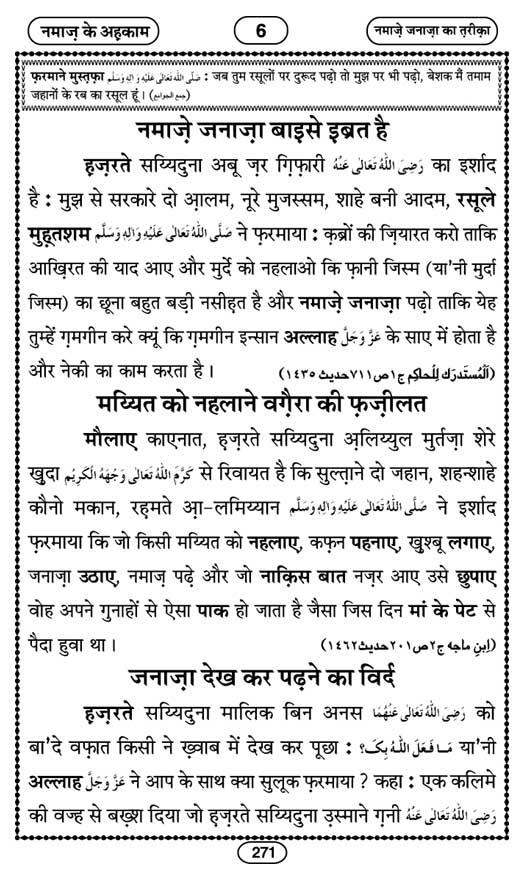 नमाज़ के अह़काम
6
नमाज़े जनाज़ा का त़रीक़ा
फ़रमाने मुस्त़फ़ा صَلَّى اللّٰهُ تَعَالٰى عَلَيْهِ وَاٰلِهٖ وَسَلَّم : जब तुम रसूलों पर दुरूद पढ़ो तो मुझ पर भी पढ़ो, बेशक मैं तमाम
जहानों के रब का रसूल हूं। (جمع الجوامع)
नमाज़े जनाज़ा बाइसे इब्रत है
ह़ज़रते सय्यिदुना अबू ज़र ग़िफ़ारी رَضِىَ اللّٰهُ تَعَالٰى عَنْهُ का इर्शाद
है : मुझ से सरकारे दो आ़लम, नूरे मुजस्सम, शाहे बनी आदम, रसूले
मुह़्तशम صَلَّى اللّٰهُ تَعَالٰى عَلَيْهِ وَاٰلِهٖ وَسَلَّم ने फ़रमाया : क़ब्रों की ज़ियारत करो ताकि
आख़िरत की याद आए और मुर्दे को नहलाओ कि फ़ानी जिस्म (या'नी मुर्दा
जिस्म) का छूना बहुत बड़ी नसीह़त है और नमाज़े जनाज़ा पढ़ो ताकि येह
तुम्हें ग़मगीन करे क्यूं कि ग़मगीन इन्सान अल्लाह عَزَّوَجَلَّ के साए में होता है
और नेकी का काम करता है। (اَلْمُسْتَدْرَك لِلْحاكِم ج١ص٧١١حديث ١٤٣٥)
मय्यित को नहलाने वग़ैरा की फ़ज़ीलत
मौलाए काएनात, ह़ज़रते सय्यिदुना अ़लिय्युल मुर्तज़ा शेरे
ख़ुदा كَرَّمَ اللّٰهُ تَعَالٰى وَجْهَهُ الْكَرِيْم से रिवायत है कि सुल्त़ाने दो जहान, शहन्शाहे
कौनो मकान, रह़मते आ़-लमिय्यान صَلَّى اللّٰهُ تَعَالٰى عَلَيْهِ وَاٰلِهٖ وَسَلَّم ने इर्शाद
फ़रमाया कि जो किसी मय्यित को नहलाए, कफ़न पहनाए, ख़ुश्बू लगाए,
जनाज़ा उठाए, नमाज़ पढ़े और जो नाक़िस बात नज़र आए उसे छुपाए
वोह अपने गुनाहों से ऐसा पाक हो जाता है जैसा जिस दिन मां के पेट से
पैदा हुवा था। (اِبن ماجه ج٢ص٢٠١حديث١٤٦٢)
जनाज़ा देख कर पढ़ने का विर्द
ह़ज़रते सय्यिदुना मालिक बिन अनस رَضِىَ اللّٰهُ تَعَالٰى عَنْهُمَا को
बा'दे वफ़ात किसी ने ख़्वाब में देख कर पूछा : مَا فَعَلَ اللّٰهُ بِکَ؟ या'नी
अल्लाह عَزَّوَجَلَّ ने आप के साथ क्या सुलूक फ़रमाया ? कहा : एक कलिमे
की वज्ह से बख़्श दिया जो ह़ज़रते सय्यिदुना उ़स्माने ग़नी رَضِىَ اللّٰهُ تَعَالٰى عَنْهُ
271